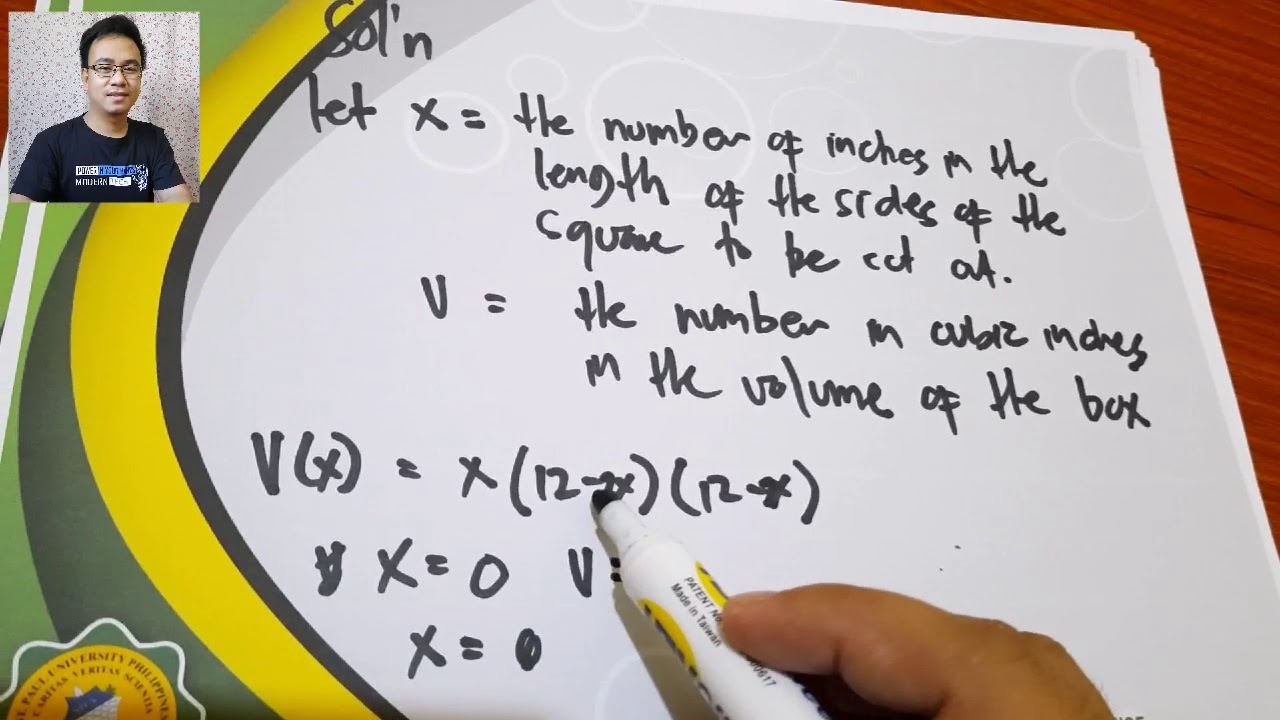 Sol'n
let x = the number of inches in the
length of the sides of the
square to be cut out.
V = the number in cubic inches
in the volume of the box
V(x) = x(12-2x)(12-x)
x = 0 V =
x = 0
PATENT NO.
Made in Taiwan
PAUL UNIVERSITY PHILIPPINE
CARITAS VERITAS SCIENTIA
POWER
MODERN